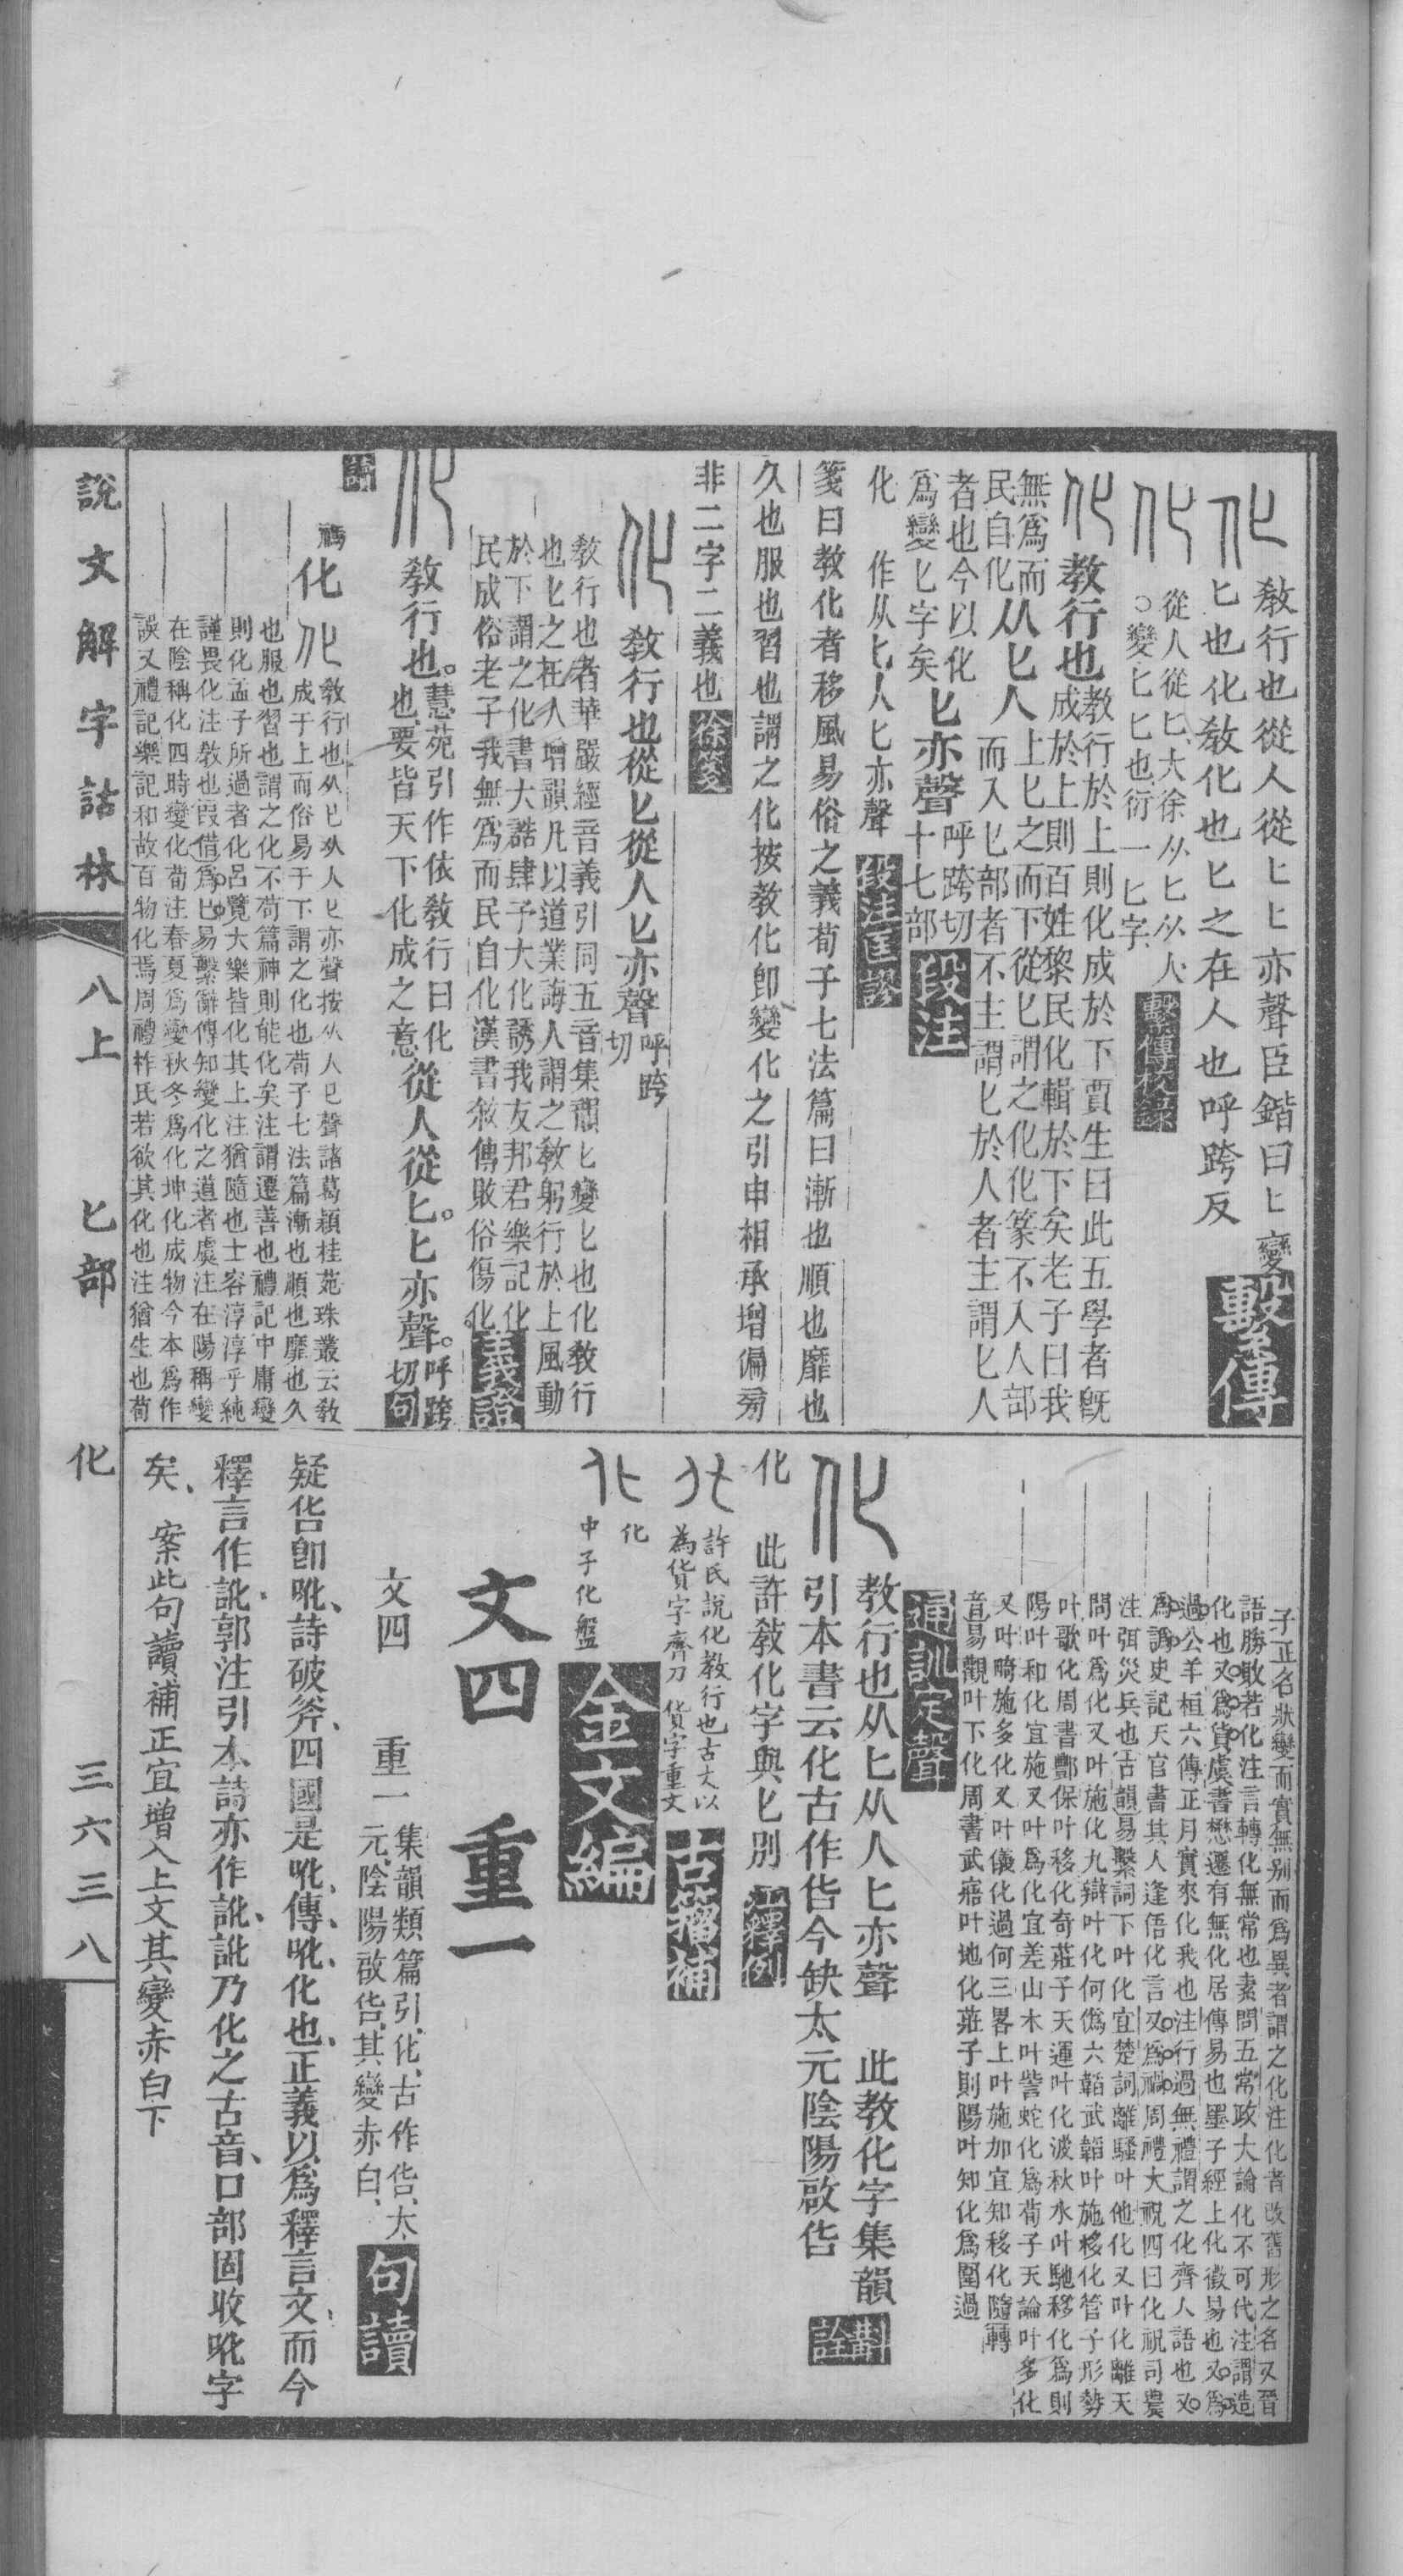 化 敎行也從人從匕匕亦聲臣鍇曰匕變
匕也化敎化也匕之在人也呼跨反 繫傳
化 從人從匕、大徐从匕从人
○變匕匕也衍一匕字 繫傳校錄
化 教行也 教行於上則化成於下賈生曰此五學者旣
成於上則百姓黎民化輯於下矣老子曰我
無爲而
民自化 从匕人 上匕之而下從匕謂之化化篆不入人部
而入匕部者不主謂匕於人者主謂匕人
者也今以化
爲變匕字矣 匕亦聲 呼跨切
十七部 段注
化 作从匕人匕亦聲 段注匡謬
箋曰教化者移風易俗之義荀子七法篇曰漸也順也靡也
久也服也習也謂之化按教化卽變化之引申相承增偏旁
非二字二義也 徐箋
化 敎行也從匕從人匕亦聲 呼跨
切
敎行也者華嚴經音義引同五音集韻匕變匕也化敎行
也匕之在人增韻凡以道業誨人謂之敎躬行於上風動
於下謂之化書大誥肆予大化誘我友邦君樂記化
民成俗老子我無爲而民自化漢書敘傳敗俗傷化 義證
化 敎行也。慧苑引作依敎行曰化
也、要皆天下化成之意 從人從匕。匕亦聲。 呼跨
切 句
讀
化 化 敎行也从匕从人匕亦聲按从人匕聲諸葛穎桂苑珠叢云敎
成于上而俗易于下謂之化也荀子七法篇漸也順也靡也久
也服也習也謂之化不苟篇神則能化矣注謂遷善也禮記中庸變
則化孟子所過者化呂覽大樂皆化其上注猶隨也士容淳淳乎純
謹畏化注敎也叚借爲匕易繫辭傳知變化之道者虞注在陽稱變
在陰稱化四時變化荀注春夏爲變秋冬爲化坤化成物今本爲作
誤又禮記樂記和故百物化焉周禮柞氏若欲其化也注猶生也荀
子正名狀變而實無别而爲異者謂之化注化者改舊形之名又晉
語勝敗若化注言轉化無常也素問五常政大論化不可代注謂造
化也又爲貨虞書懋遷有無化居傳易也墨子經上化徵易也又爲
過公羊桓六傳正月實來化我也注行過無禮謂之化齊人語也又
爲譌史記天官書其人逢俉化言又爲禍周禮大祝四曰化祝司農
注弭災兵也 古韻 易繫詞下叶化宜楚詞離騷叶他化又叶化離天
問叶爲化又叶施化九辯叶化何僞六韜武韜叶施移化管子形勢
叶歌化周書酆保叶移化奇莊子天運叶化波秋水叶馳移化爲則
陽叶和化宜施又叶爲化宜差山木叶訾蛇化爲荀子天論叶多化
又叶畸施多化又叶儀化過何三畧上叶施加宜知移化隨 轉
音 易觀叶下化周書武寤叶地化莊子則陽叶知化爲圍過
通訓定聲
化 教行也从匕从人匕亦聲 此教化字集韻
引本書云化古作𠤎今缺太元陰陽啟𠤎 斠詮
化 此許敎化字與匕別 釋例
許氏說化教行也古文以
為貨字齊刀 貨字重文 古籀補
化
中子化盤 金文編
文四 重一
文四 重一 集韻類篇引、化、古作𠤎、太
元、陰陽啟𠤎、其變赤白、 句讀
疑𠤎卽吪、詩破斧、四國是吪、傳、吪、化也、正義以爲釋言文、而今
釋言作訛、郭注引本詩亦作訛、訛乃化之古音、口部固收吪字
矣、 案此句讀補正宜增入上文其變赤白下
說文解字詁林 八上 匕部 化 三六三八